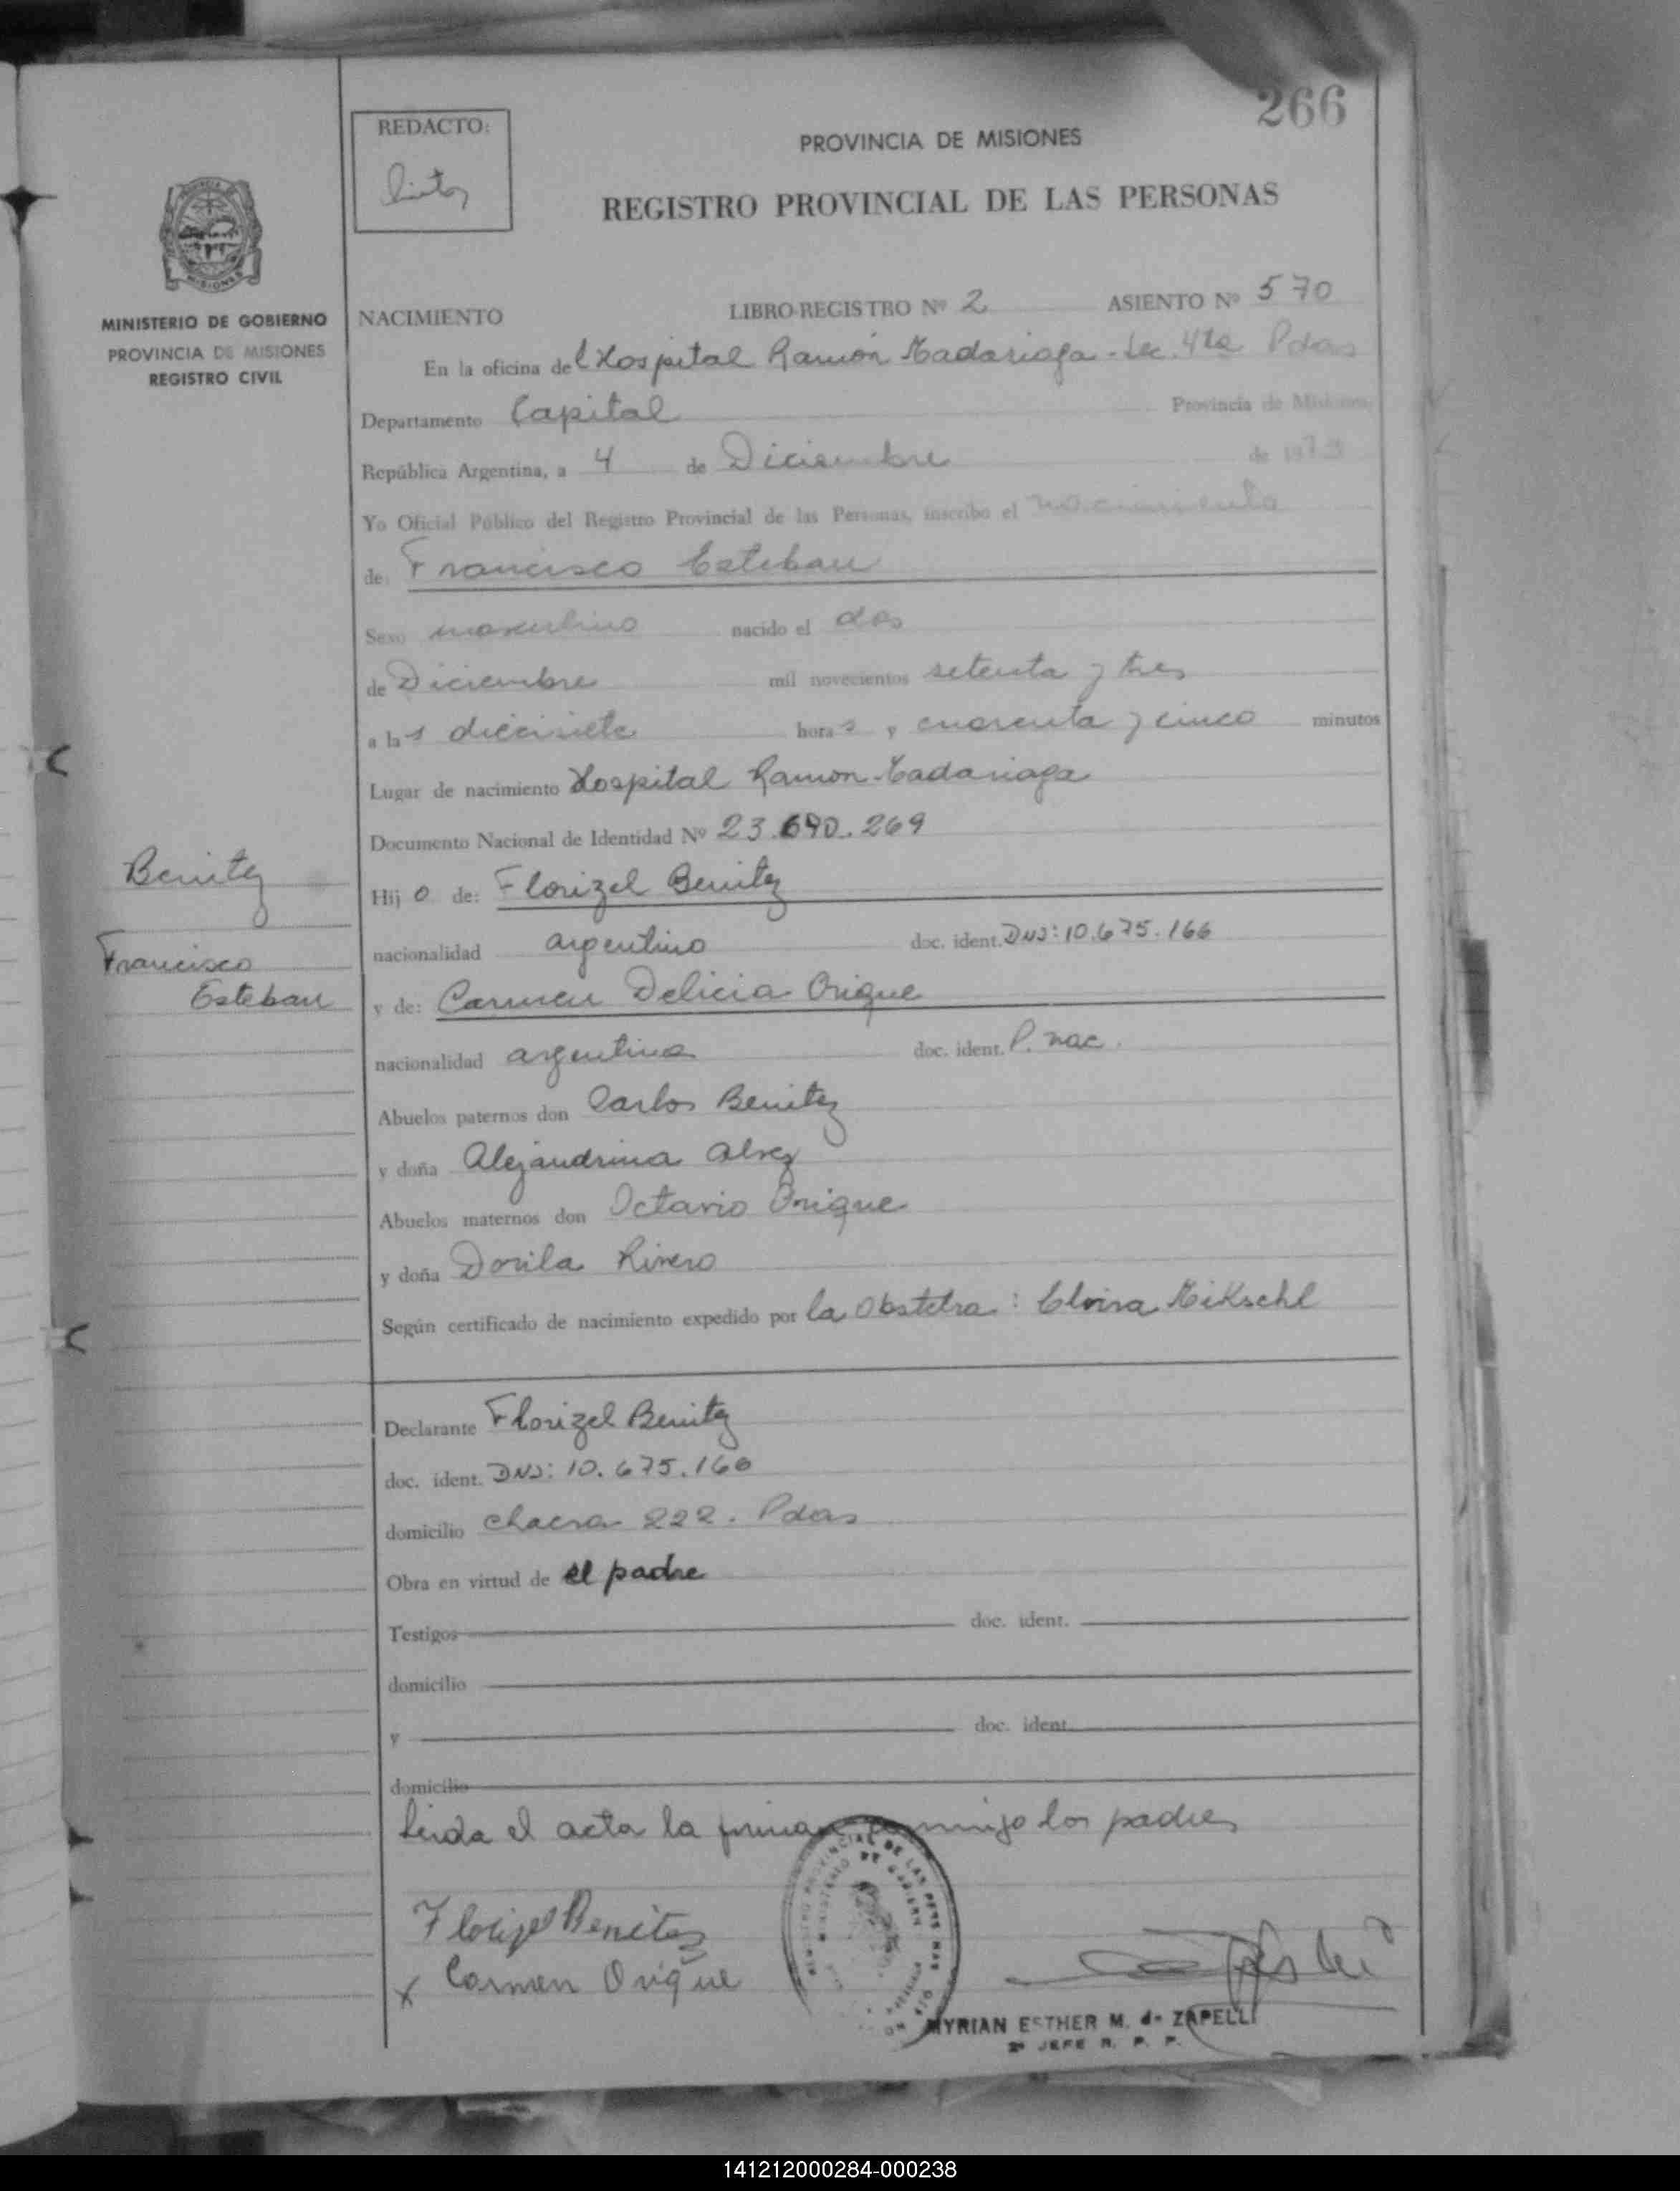 266
REDACTO:
PROVINCIA DE MISIONES
REGISTRO PROVINCIAL DE LAS PERSONAS
MINISTERIO DE GOBIERNO
PROVINCIA DE MISIONES
REGISTRO CIVIL
NACIMIENTO LIBRO-REGISTRO Nº 2 ASIENTO Nº 570
En la oficina del Hospital Ramón Madariaga - Sec. 4ta Pdas
Departamento Capital Provincia de Misiones
República Argentina, a 4 de Diciembre de 1973
Yo Oficial Público del Registro Provincial de las Personas, inscribo el nacimiento
de: Francisco Esteban
Sexo masculino nacido el dos
de Diciembre mil novecientos setenta y tres
a las diecisiete horas y cuarenta y cinco minutos
Lugar de nacimiento Hospital Ramon Madariaga
Documento Nacional de Identidad Nº 23.690.269
Benitez
Francisco
Esteban
Hijo de: Florizel Benitez
nacionalidad argentino doc. ident. DNI: 10.675.166
y de: Carmen Delicia Orique
nacionalidad argentina doc. ident. P. nac.
Abuelos paternos don Carlos Benitez
y doña Alejandrina Alvez
Abuelos maternos don Octavio Orique
y doña Dorila Rivero
Según certificado de nacimiento expedido por la Obstetra: Elvira Mikschl
Declarante Florizel Benitez
doc. ident. DNI: 10.675.166
domicilio chacra 222. Pdas
Obra en virtud de el padre
Testigos doc. ident.
domicilio
y doc. ident.
domicilio
Leida el acta la firman conmigo los padres
Florizel Benitez
x Carmen Orique
MYRIAN ESTHER M. de ZAPELLI
2º JEFE R. P. P.
141212000284-000238